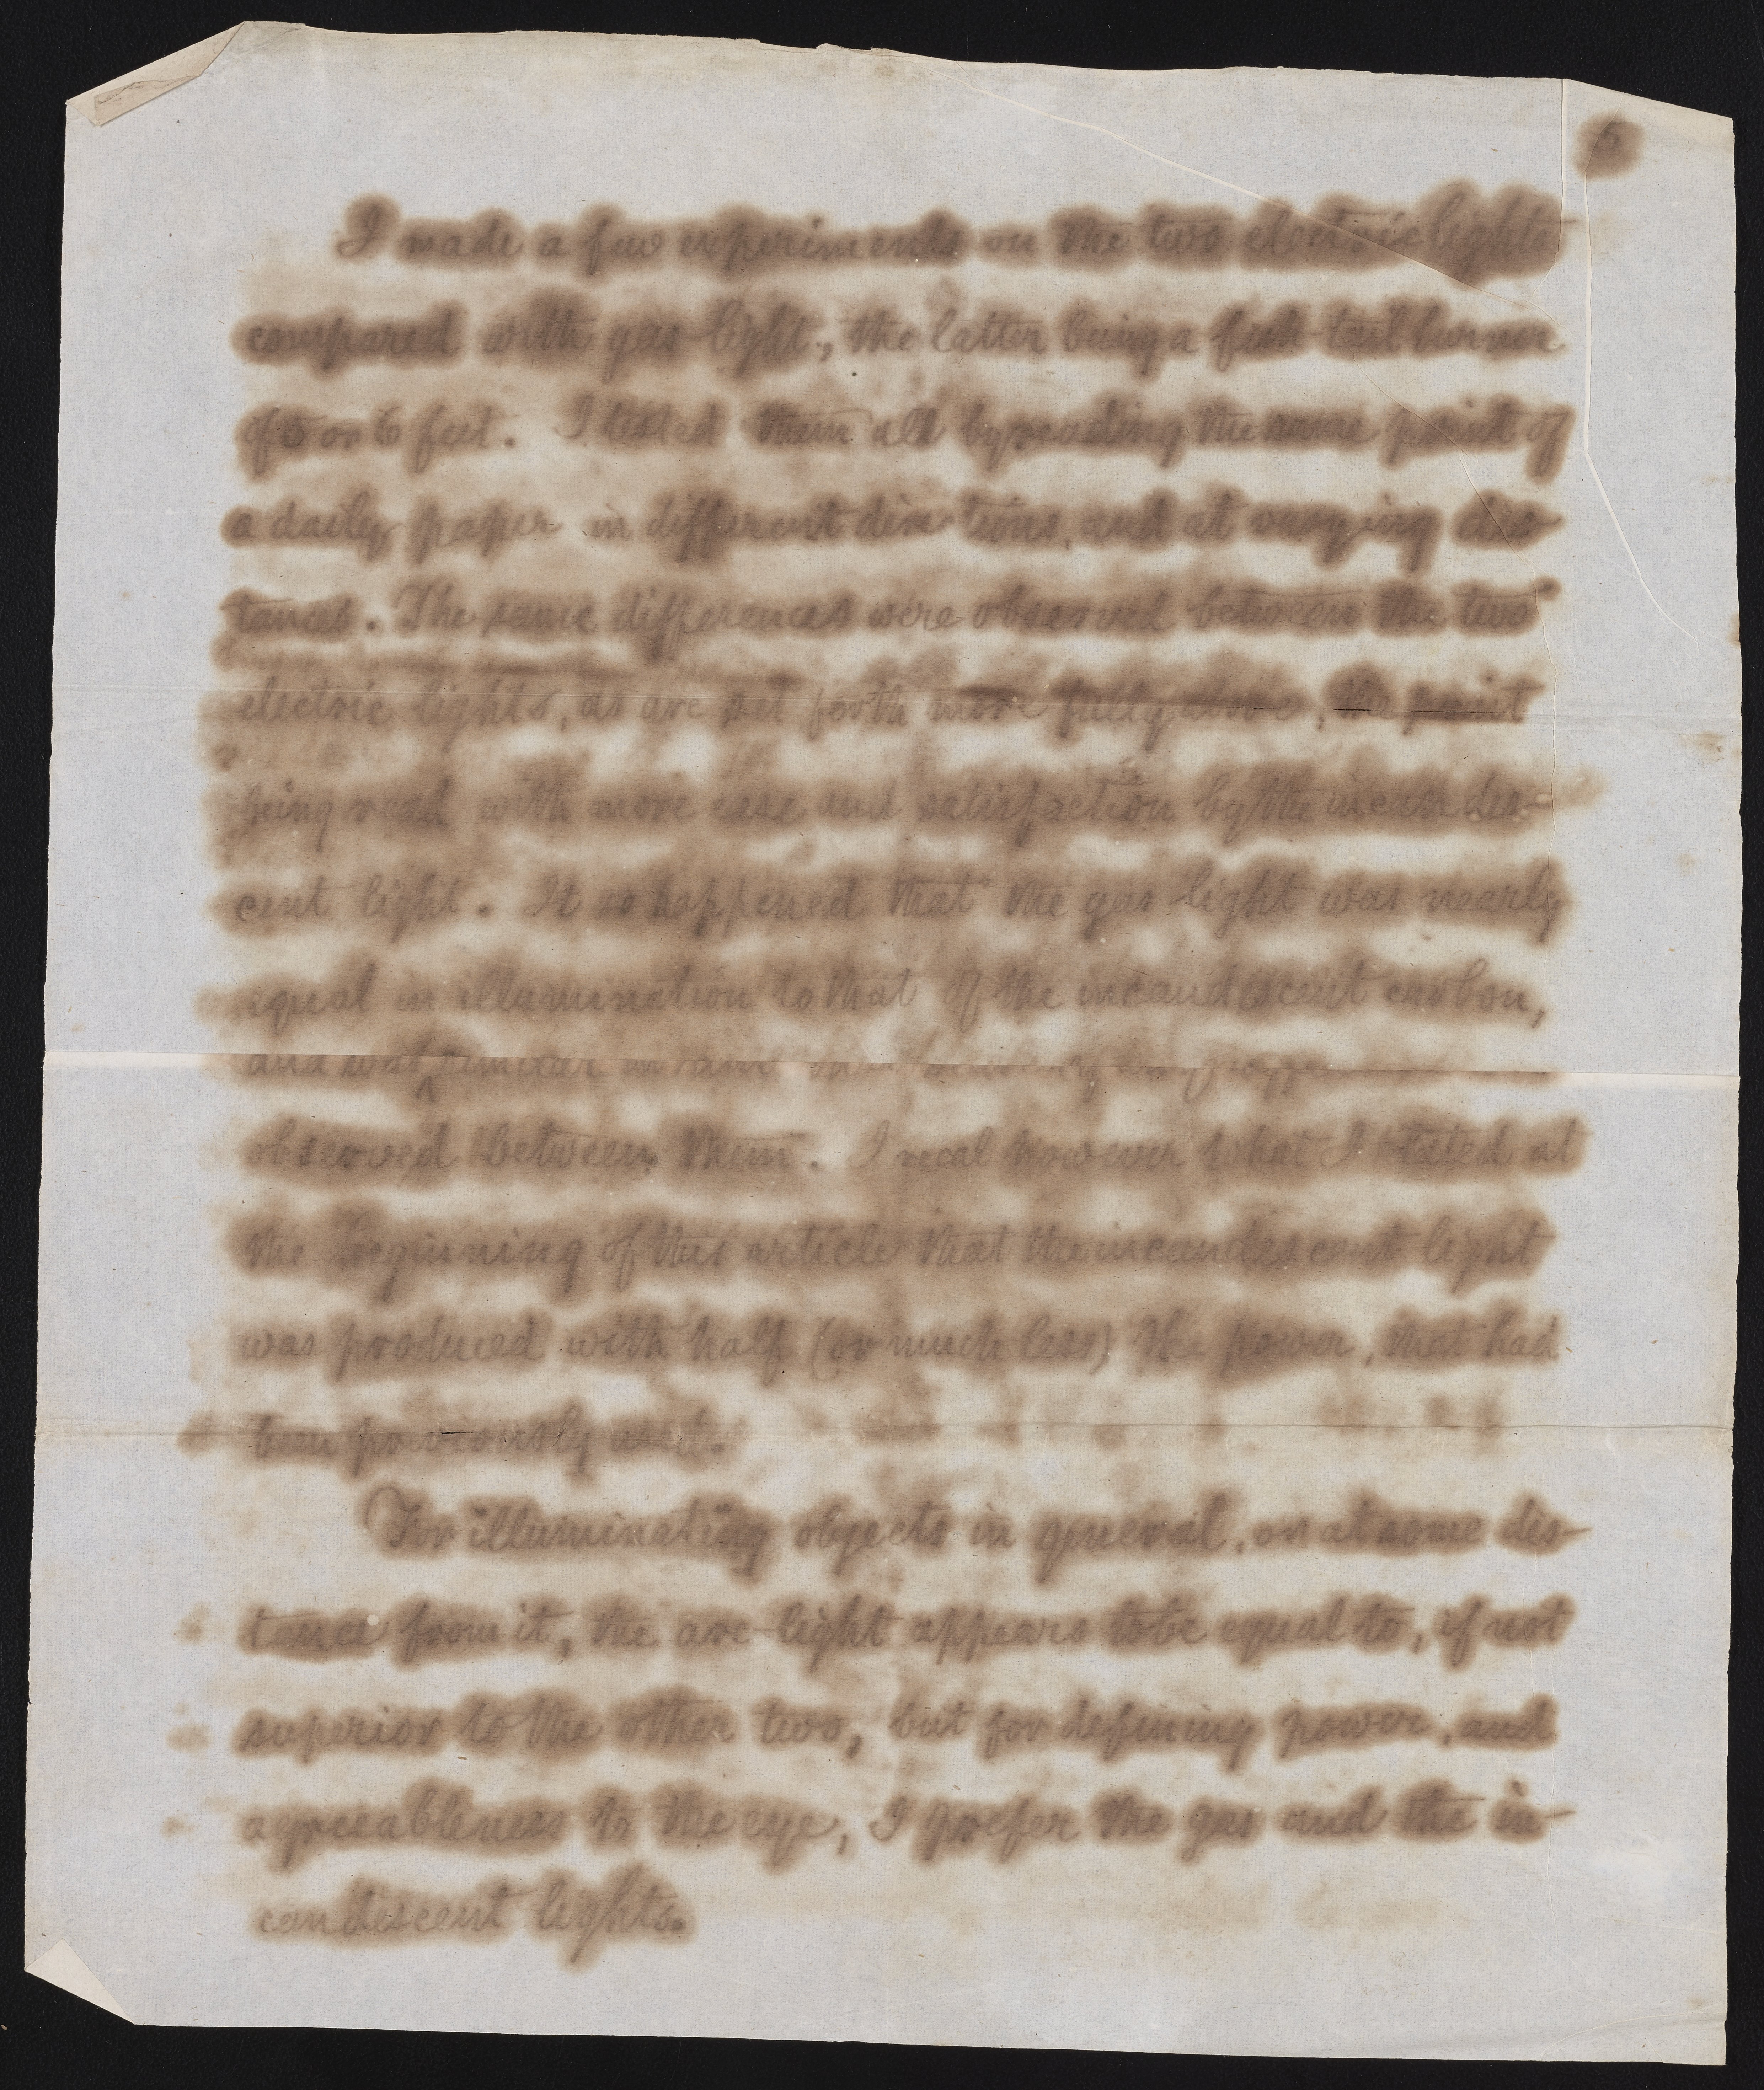 5
I made a few experiments on the two electric lights
compared with gas-light, the latter being a fish-tail burner
of 5 or 6 feet. I tested them all by reading the same print of
a daily paper in different direc-tions, and at varying dis-
tances. The same differences were observed between the two
electric lights, as are set forth more fully above, the print
being read with more ease and satisfaction by the incandes-
cent light. It so happened that the gas light was nearly
equal in illumination to that of the incandescent carbon,
and was similar in
observed between them. I recal however what I stated at
the beginning of this article that the incandescent light
was produced with half (or much less) the power, that had
been previously used.
For illuminating objects in general, or at some dis-
tance from it, the arc-light appears to be equal to, if not
superior to the other two, but for defining power, and
agreeableness to the eye, I prefer the gas and the in-
candescent lights.